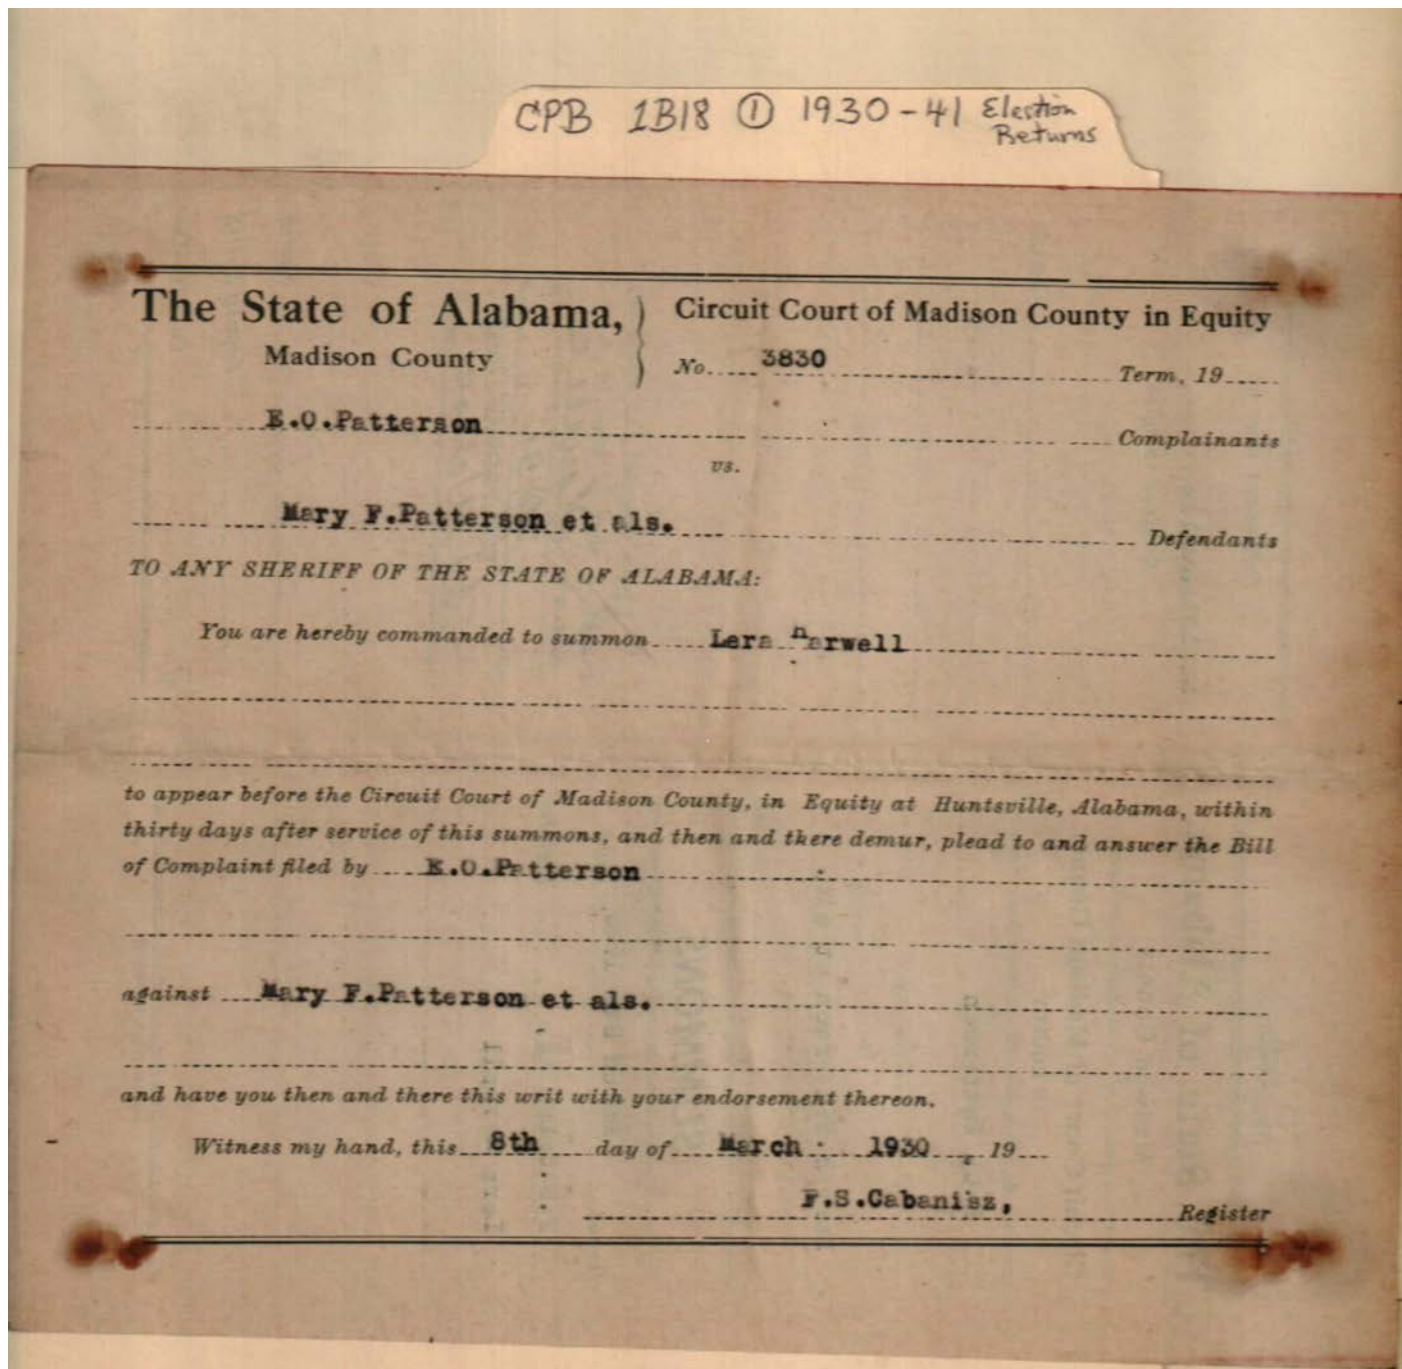 CPB 1B18 ① 1930-41 Election
Returns
The State of Alabama, } Circuit Court of Madison County in Equity
Madison County No. 3830 Term, 19
E.O.Patterson Complainants
vs.
Mary F.Patterson et als. Defendants
TO ANY SHERIFF OF THE STATE OF ALABAMA:
You are hereby commanded to summon Lera
to appear before the Circuit Court of Madison County, in Equity at Huntsville, Alabama, within
thirty days after service of this summons, and then and there demur, plead to and answer the Bill
of Complaint filed by E.O.Patterson
against Mary F.Patterson et als.
and have you then and there this writ with your endorsement thereon.
Witness my hand, this 8th day of March 1930, 19
F.S.Cabanisz, Register